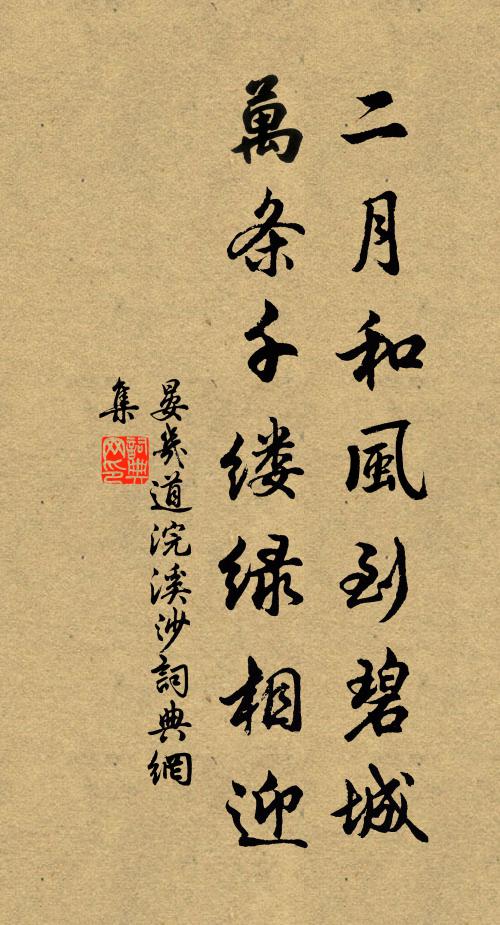 二月和風到碧城
萬条千缕绿相迎
晏幾道浣溪沙詞典網
集
詞典网印